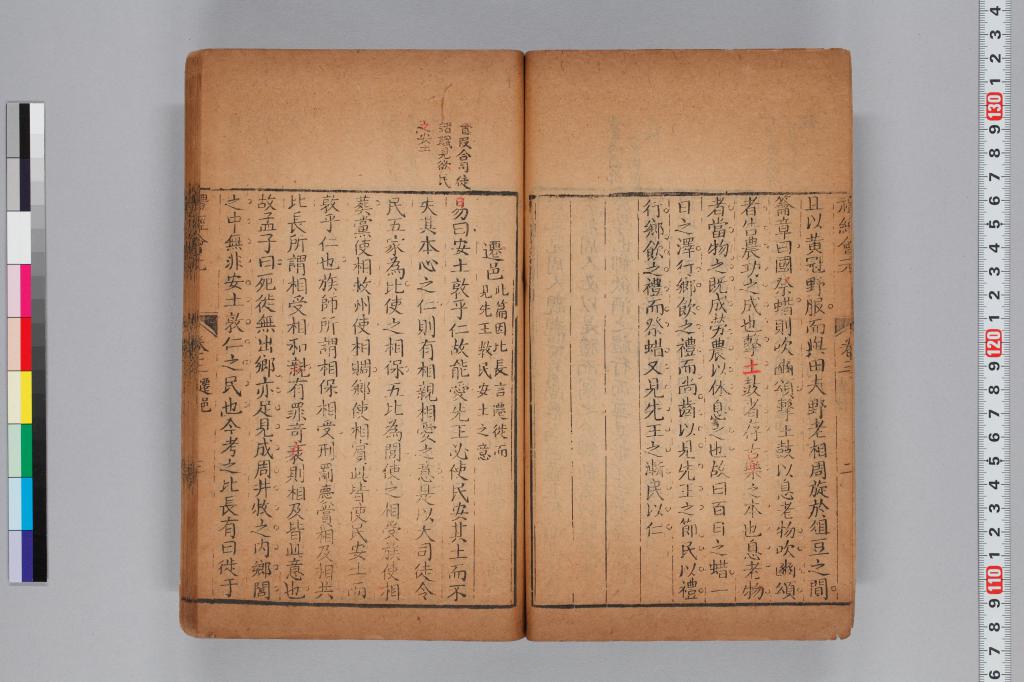 且以黄冠野服而與田夫野老相周旋於俎豆之間
籥章曰國祭蜡則吹豳頌擊土鼓以息老物吹豳頌
者告農功之成也擊土鼓者存古樂之本也息老物
者當物之既成勞農以休息之也故曰百日之蜡一
日之澤行鄉飲之禮而尚齒以見先王之節民以禮
行鄉飲之禮而祭蜡又見先王之漸民以仁
禮經會元
卷三
二
遷邑
此篇因比長言遷徙而
見先王教民安土之意
易曰安土敦乎仁故能愛先王必使民安其土而不
失其本心之仁則有相親相愛之意是以大司徒令
民五家為比使之相保五比為閭使之相受族使相
葬黨使相救州使相賙鄉使相賓此皆使民安土而
敦乎仁也族師所謂相保相受刑罰慶賞相及相共
比長所謂相受相和親有罪奇衺則相及皆此意也
故孟子曰死徙無出鄉亦足見成周井牧之内鄉閭
之中無非安土敦仁之民也今考之比長有曰徙于
首段合司徒
職見欲民
之安土
禮經會元
卷三
遷邑
三